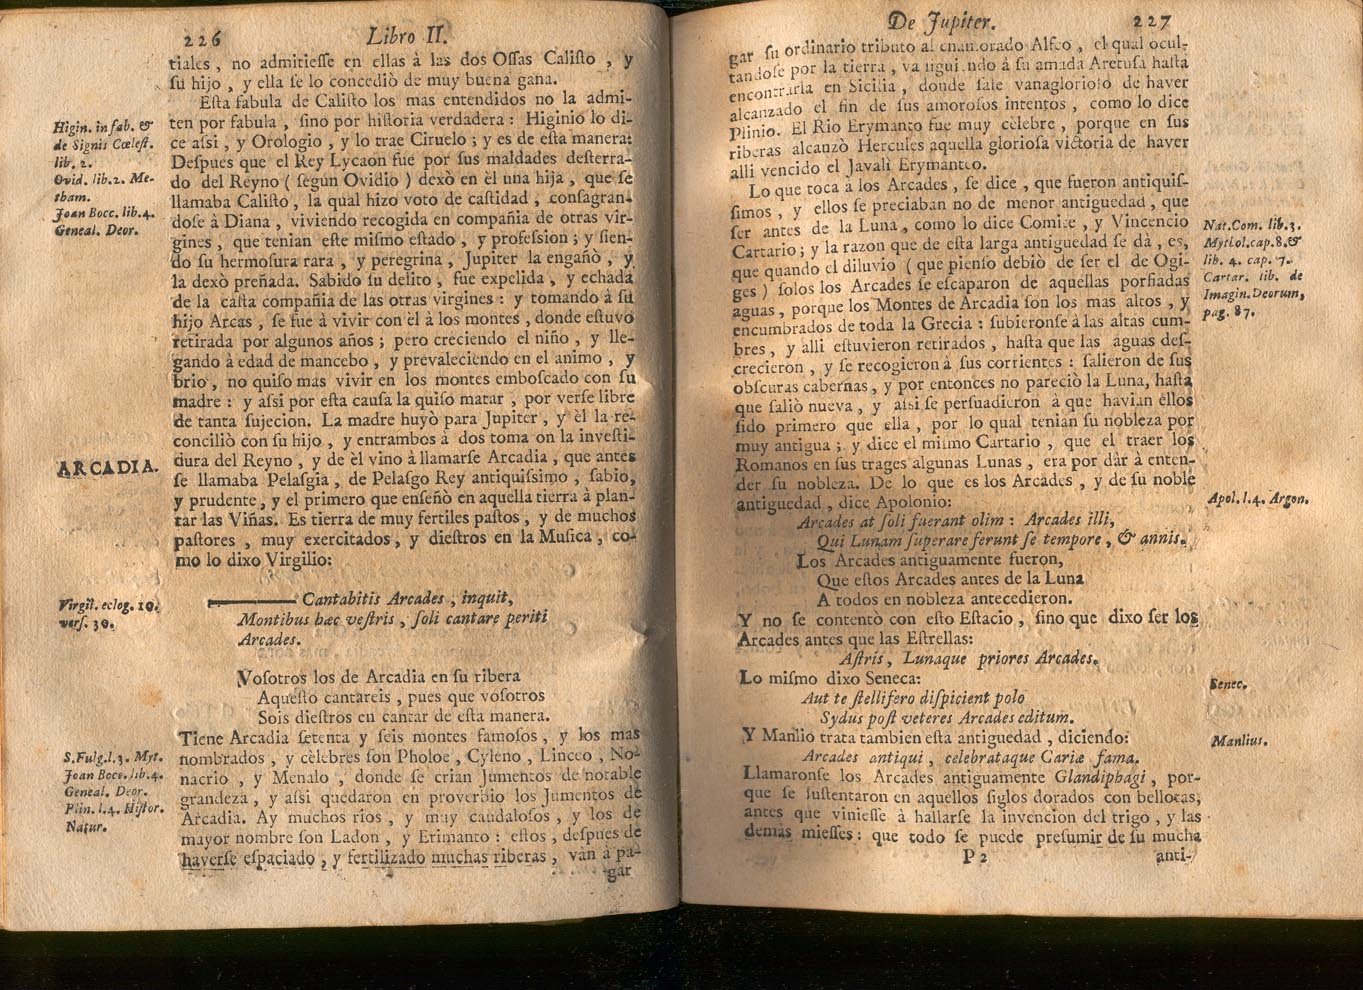 226 Libro II.
tiales, no admitiesse en ellas à las dos Ossas Calisto, y
su hijo, y ella se lo concediò de muy buena gana.
Esta fabula de Calisto los mas entendidos no la admi-
ten por fabula, sino por historia verdadera: Higinio lo di-
ce assi, y Orologio, y lo trae Ciruelo; y es de esta manera:
Despues que el Rey Lycaon fue por sus maldades desterra-
do del Reyno (segun Ovidio) dexò en èl una hija, que se
llamaba Calisto, la qual hizo voto de castidad, consagran-
dose à Diana, viviendo recogida en compañia de otras vir-
gines, que tenian este mismo estado, y profession; y sien-
do su hermosura rara, y peregrina, Jupiter la engañò, y
la dexò preñada. Sabido su delito, fue expelida, y echada
de la casta compañia de las otras virgines: y tomando à su
hijo Arcas, se fue à vivir con èl à los montes, donde estuvo
retirada por algunos años; pero creciendo el niño, y lle-
gando à edad de mancebo, y prevaleciendo en el animo, y
brio, no quiso mas vivir en los montes emboscado con su
madre: y assi por esta causa la quiso matar, por verse libre
de tanta sujecion. La madre huyò para Jupiter, y èl la re-
conciliò con su hijo, y entrambos à dos toma on la investi-
dura del Reyno, y de èl vino à llamarse Arcadia, que antes
se llamaba Pelasgia, de Pelasgo Rey antiquissimo, sabio,
y prudente, y el primero que enseñò en aquella tierra à plan-
tar las Viñas. Es tierra de muy fertiles pastos, y de muchos
pastores, muy exercitados, y diestros en la Musica, co-
mo lo dixo Virgilio:
Cantabitis Arcades, inquit,
Montibus hæc vestris, soli cantare periti
Arcades.
Vosotros los de Arcadia en su ribera
Aquesto cantareis, pues que vosotros
Sois diestros en cantar de esta manera.
Tiene Arcadia setenta y seis montes famosos, y los mas
nombrados, y cèlebres son Pholoe, Cyleno, Linceo, No-
nacrio, y Menalo, donde se crian Jumentos de notable
grandeza, y assi quedaron en proverbio los Jumentos de
Arcadia. Ay muchos rios, y muy caudalosos, y los de
mayor nombre son Ladon, y Erimanto: estos, despues de
haverse espaciado, y fertilizado muchas riberas, vàn à pa-
gar
Higin. in fab. &
de Signis Cœlest.
lib. 2.
Ovid. lib. 2. Me-
tham.
Joan Bocc. lib. 4.
Geneal. Deor.
ARCADIA.
Virgil. eclog. 10.
vers. 30.
S. Fulg. l. 3. Myt.
Joan Bocc. lib. 4.
Geneal. Deor.
Plin. l. 4. Histor.
Natur.
De Jupiter. 227
gar su ordinario tributo al enamorado Alfeo, el qual ocul-
tandose por la tierra, va sigui ndo à su amada Aretusa hasta
encontrarla en Sicilia, donde sale vanaglorioso de haver
alcanzado el fin de sus amorosos intentos, como lo dice
Plinio. El Rio Erymanto fue muy cèlebre, porque en sus
riberas alcanzò Hercules aquella gloriosa victoria de haver
alli vencido el Javalì Erymanteo.
Lo que toca à los Arcades, se dice, que fueron antiquis-
simos, y ellos se preciaban no de menor antiguedad, que
ser antes de la Luna, como lo dice Comite, y Vincencio
Cartario; y la razon que de esta larga antiguedad se dà, es,
que quando el diluvio (que pienso debiò de ser el de Ogi-
ges) solos los Arcades se escaparon de aquellas porfiadas
aguas, porque los Montes de Arcadia son los mas altos, y
encumbrados de toda la Grecia: subieronse à las altas cum-
bres, y alli estuvieron retirados, hasta que las aguas des-
crecieron, y se recogieron à sus corrientes: salieron de sus
obscuras cabernas, y por entonces no pareciò la Luna, hasta
que saliò nueva, y assi se persuadieron à que havian ellos
sido primero que ella, por lo qual tenian su nobleza por
muy antigua; y dice el mismo Cartario, que el traer los
Romanos en sus trages algunas Lunas, era por dàr à enten-
der su nobleza. De lo que es los Arcades, y de su noble
antiguedad, dice Apolonio:
Arcades at soli fuerant olim: Arcades illi,
Qui Lunam superare ferunt se tempore, & annis.
Los Arcades antiguamente fueron,
Que estos Arcades antes de la Luna
A todos en nobleza antecedieron.
Y no se contentò con esto Estacio, sino que dixo ser los
Arcades antes que las Estrellas:
Astris, Lunaque priores Arcades.
Lo mismo dixo Seneca:
Aut te stellifero dispicient polo
Sydus post veteres Arcades editum.
Y Manlio trata tambien esta antiguedad, diciendo:
Arcades antiqui, celebrataque Cariæ fama.
Llamaronse los Arcades antiguamente Glandiphagi, por-
que se sustentaron en aquellos siglos dorados con bellotas,
antes que viniesse à hallarse la invencion del trigo, y las
demàs miesses: que todo se puede presumir de su mucha
P 2 anti-
Nat. Com. lib. 3.
Mythol. cap. 8. &
lib. 4. cap. 7.
Cartar. lib. de
Imagin. Deorum,
pag. 87.
Apol. l. 4. Argon.
Senec.
Manlius.